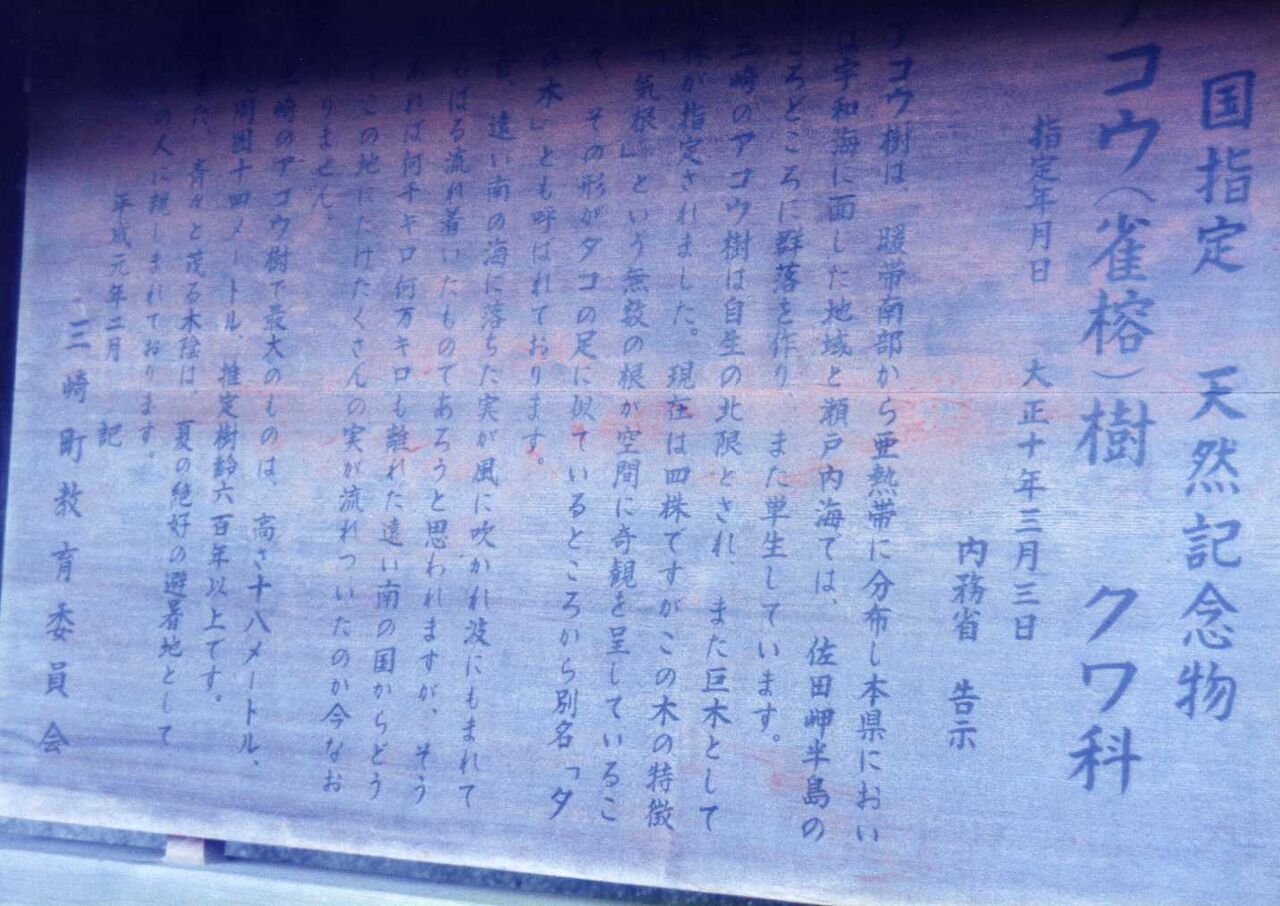 国指定　天然記念物
アコウ（雀榕）樹　クワ科
指定年月日　大正十年三月三日
内務省　告示
アコウ樹は、暖帯南部から亜熱帯に分布し本県におい
は宇和海に面した地域と瀬戸内海では、佐田岬半島の
ころどころに群落を作り、また単生しています。
三崎のアコウ樹は自生の北限とされ、また巨木として
株が指定されました。現在は四株ですがこの木の特徴
「気根」という無数の根が空間に奇観を呈しているこ
で、その形がタコの足に似ているところから別名「タ
の木」とも呼ばれております。
昔、遠い南の海に落ちた実が風に吹かれ波にもまれて
るばる流れ着いたものであろうと思われますが、そう
あれば何千キロ何万キロも離れた遠い南の国からどう
てこの地にだけたくさんの実が流れついたのか今なお
りません。
三崎のアコウ樹で最大のものは、高さ十八メートル、
周囲十四メートル、推定樹齢六百年以上です。
また、青々と茂る木陰は、夏の絶好の避暑地として
の人に親しまれております。
平成元年二月　記
三崎町教育委員会